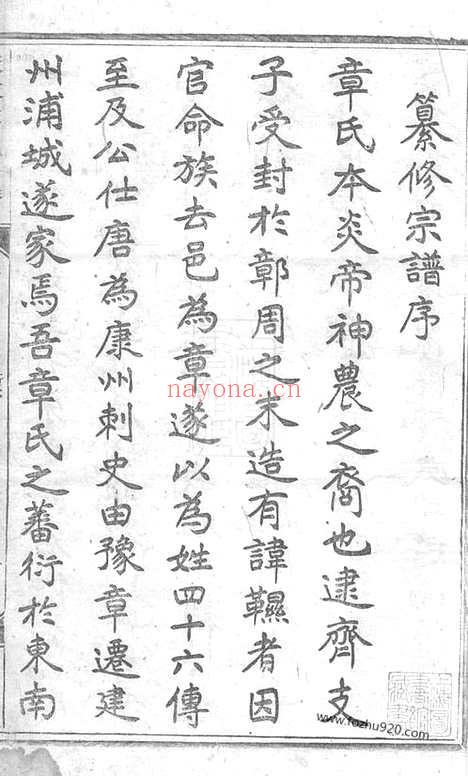 纂修宗譜序
章氏本炎帝神農之裔也逮齊支
子受封於鄣周之末造有諱韅者因
官命族去邑為章遂以為姓四十六傳
至及公仕唐為康州刺史由豫章遷建
州浦城遂家焉吾章氏之蕃衍於東南
nayona.cn
www.fozhu920.com